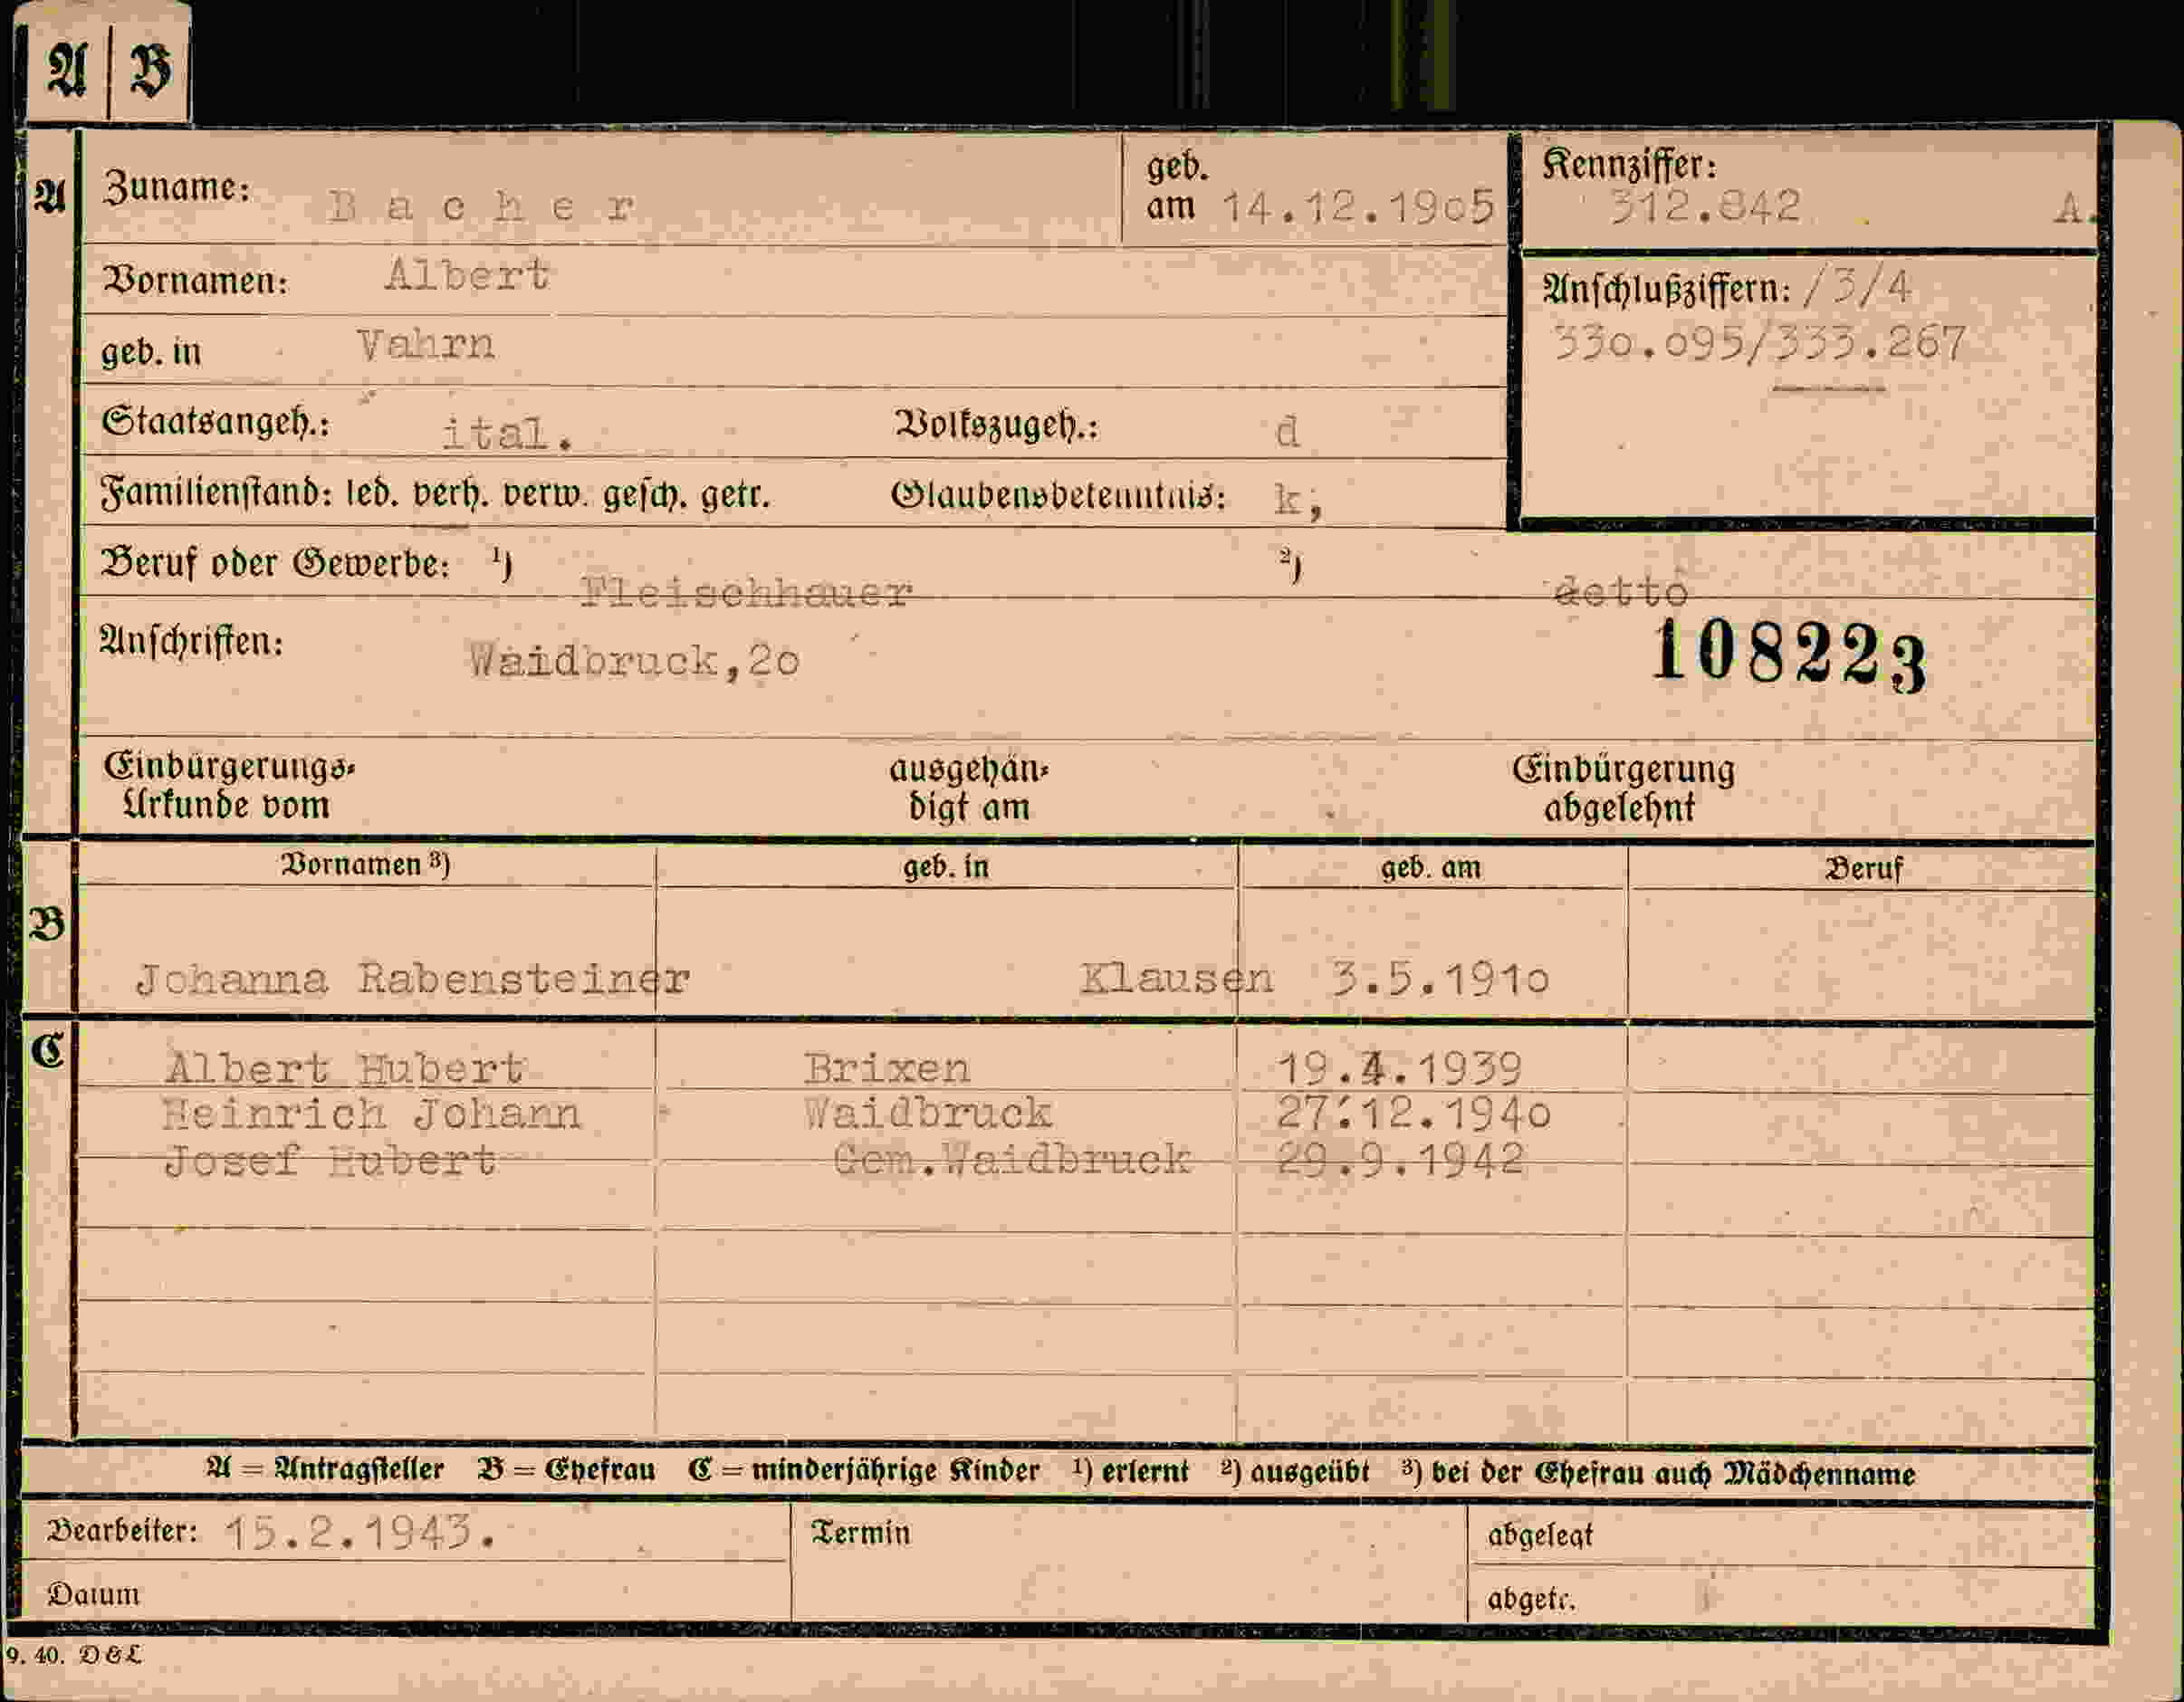 A B
A
Zuname: Bacher
geb. am 14.12.1905
Kennziffer: 312.842 A.
Vornamen: Albert
Anschlußziffern: /3/4
330.095/333.267
geb. in Vahrn
Staatsangeh.: ital. Volkszugeh.: d
Familienstand: led. verh. verw. gesch. getr. Glaubensbekenntnis: k;
Beruf oder Gewerbe: ¹) Fleischhauer ²) detto
Anschriften: Waidbruck,20
108223
Einbürgerungs-
Urkunde vom
ausgehän-
digt am
Einbürgerung
abgelehnt
Vornamen ³) geb. in geb. am Beruf
B
Johanna Rabensteiner Klausen 3.5.1910
C
Albert Hubert Brixen 19.4.1939
Heinrich Johann Waidbruck 27.12.1940
Josef Hubert Gem.Waidbruck 29.9.1942
A = Antragsteller B = Ehefrau C = minderjährige Kinder ¹) erlernt ²) ausgeübt ³) bei der Ehefrau auch Mädchenname
Bearbeiter: 15.2.1943. Termin abgelegt
Datum abgetr.
9. 40. D & L